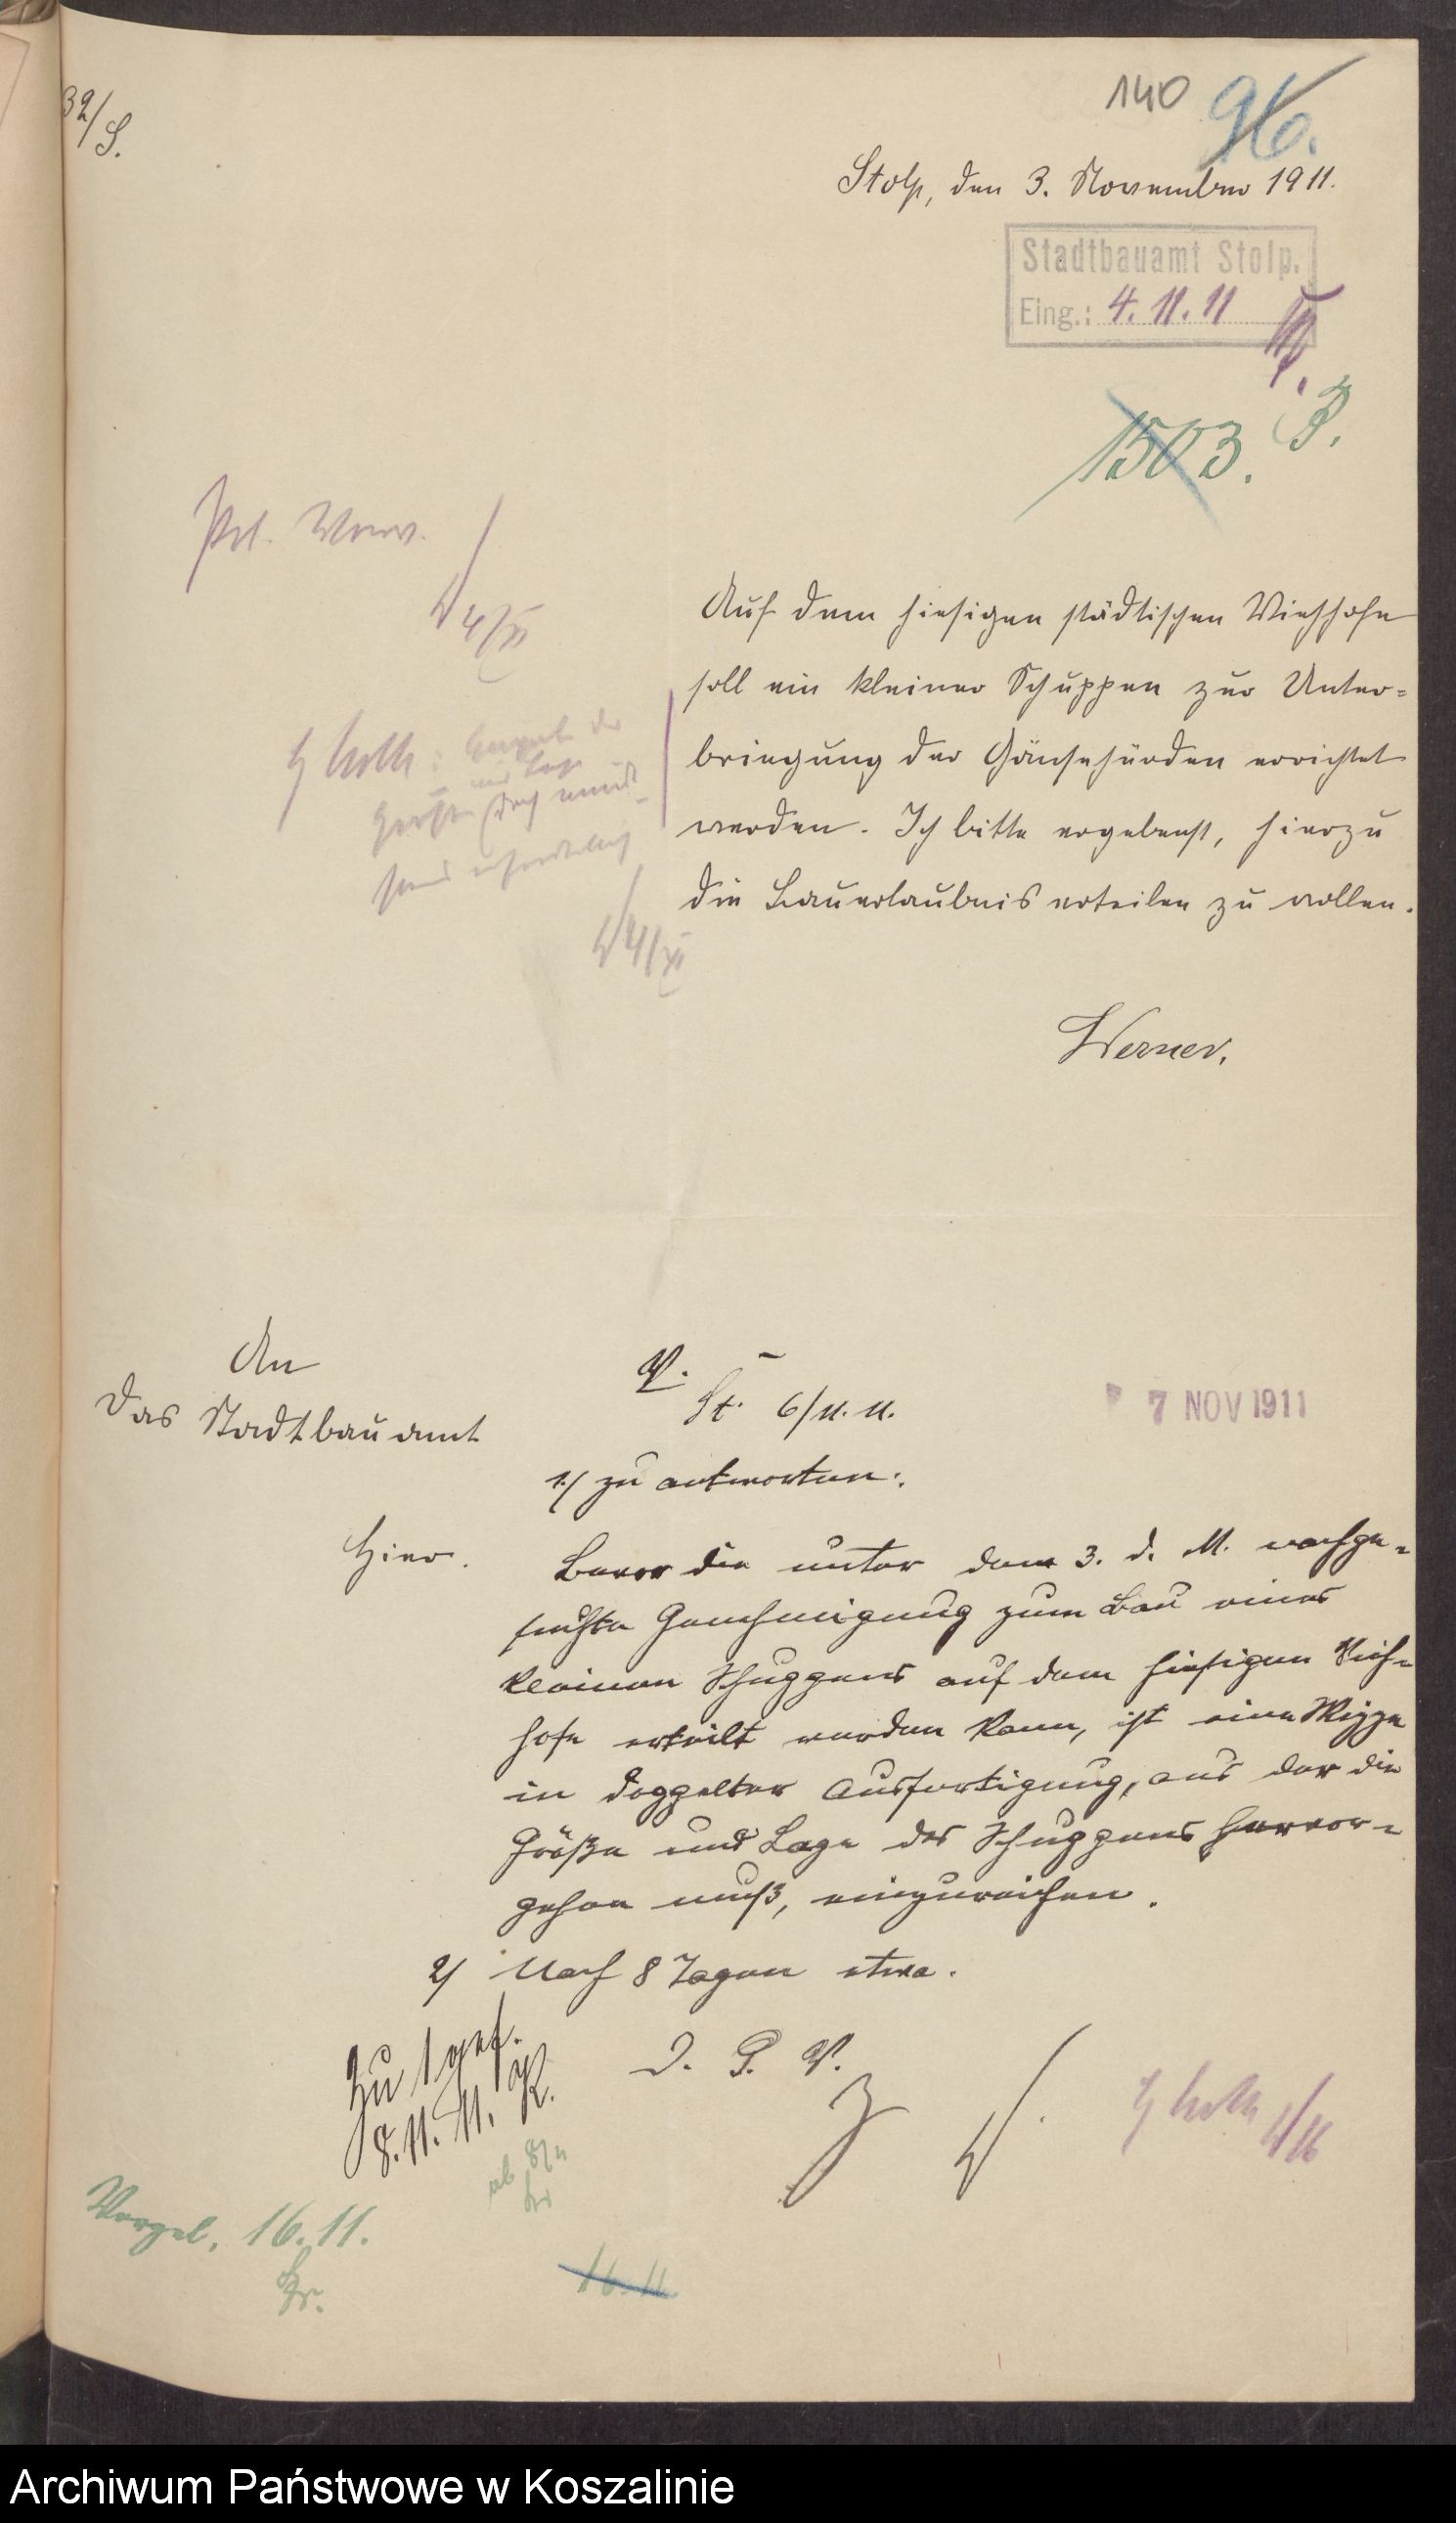 39/S.
140
96.
Stolp, den 3. November 1911.
Stadtbauamt Stolp.
Eing.: 4. 11. 11
1503.
4/XI
Auf dem hiesigen städtischen Viehhofe
soll ein kleiner Schuppen zur Unter=
bringung der Gänsehürden errichtet
werden. Ich bitte ergebenst, hierzu
die Bauerlaubnis erteilen zu wollen.
4/XI
Werner.
An
das Stadtbauamt
Hier.
V.
St. 6/11. 11.
7 NOV 1911
1./ zu antworten:
Bevor die unter dem 3. d. M. nachge=
suchte Genehmigung zum Bau eines
kleinen Schuppens auf dem hiesigen Vieh=
hofe erteilt werden kann, ist eine Skizze
in doppelter Ausfertigung, aus der die
Größe und Lage des Schuppens hervor=
gehen muß, einzureichen.
2/ Nach 8 Tagen etwa.
D. P. V.
zu 1 gef.
8. 11. 11. K.
ab 8/11
Vorgel. 16. 11.
16. 11.
Archiwum Państwowe w Koszalinie